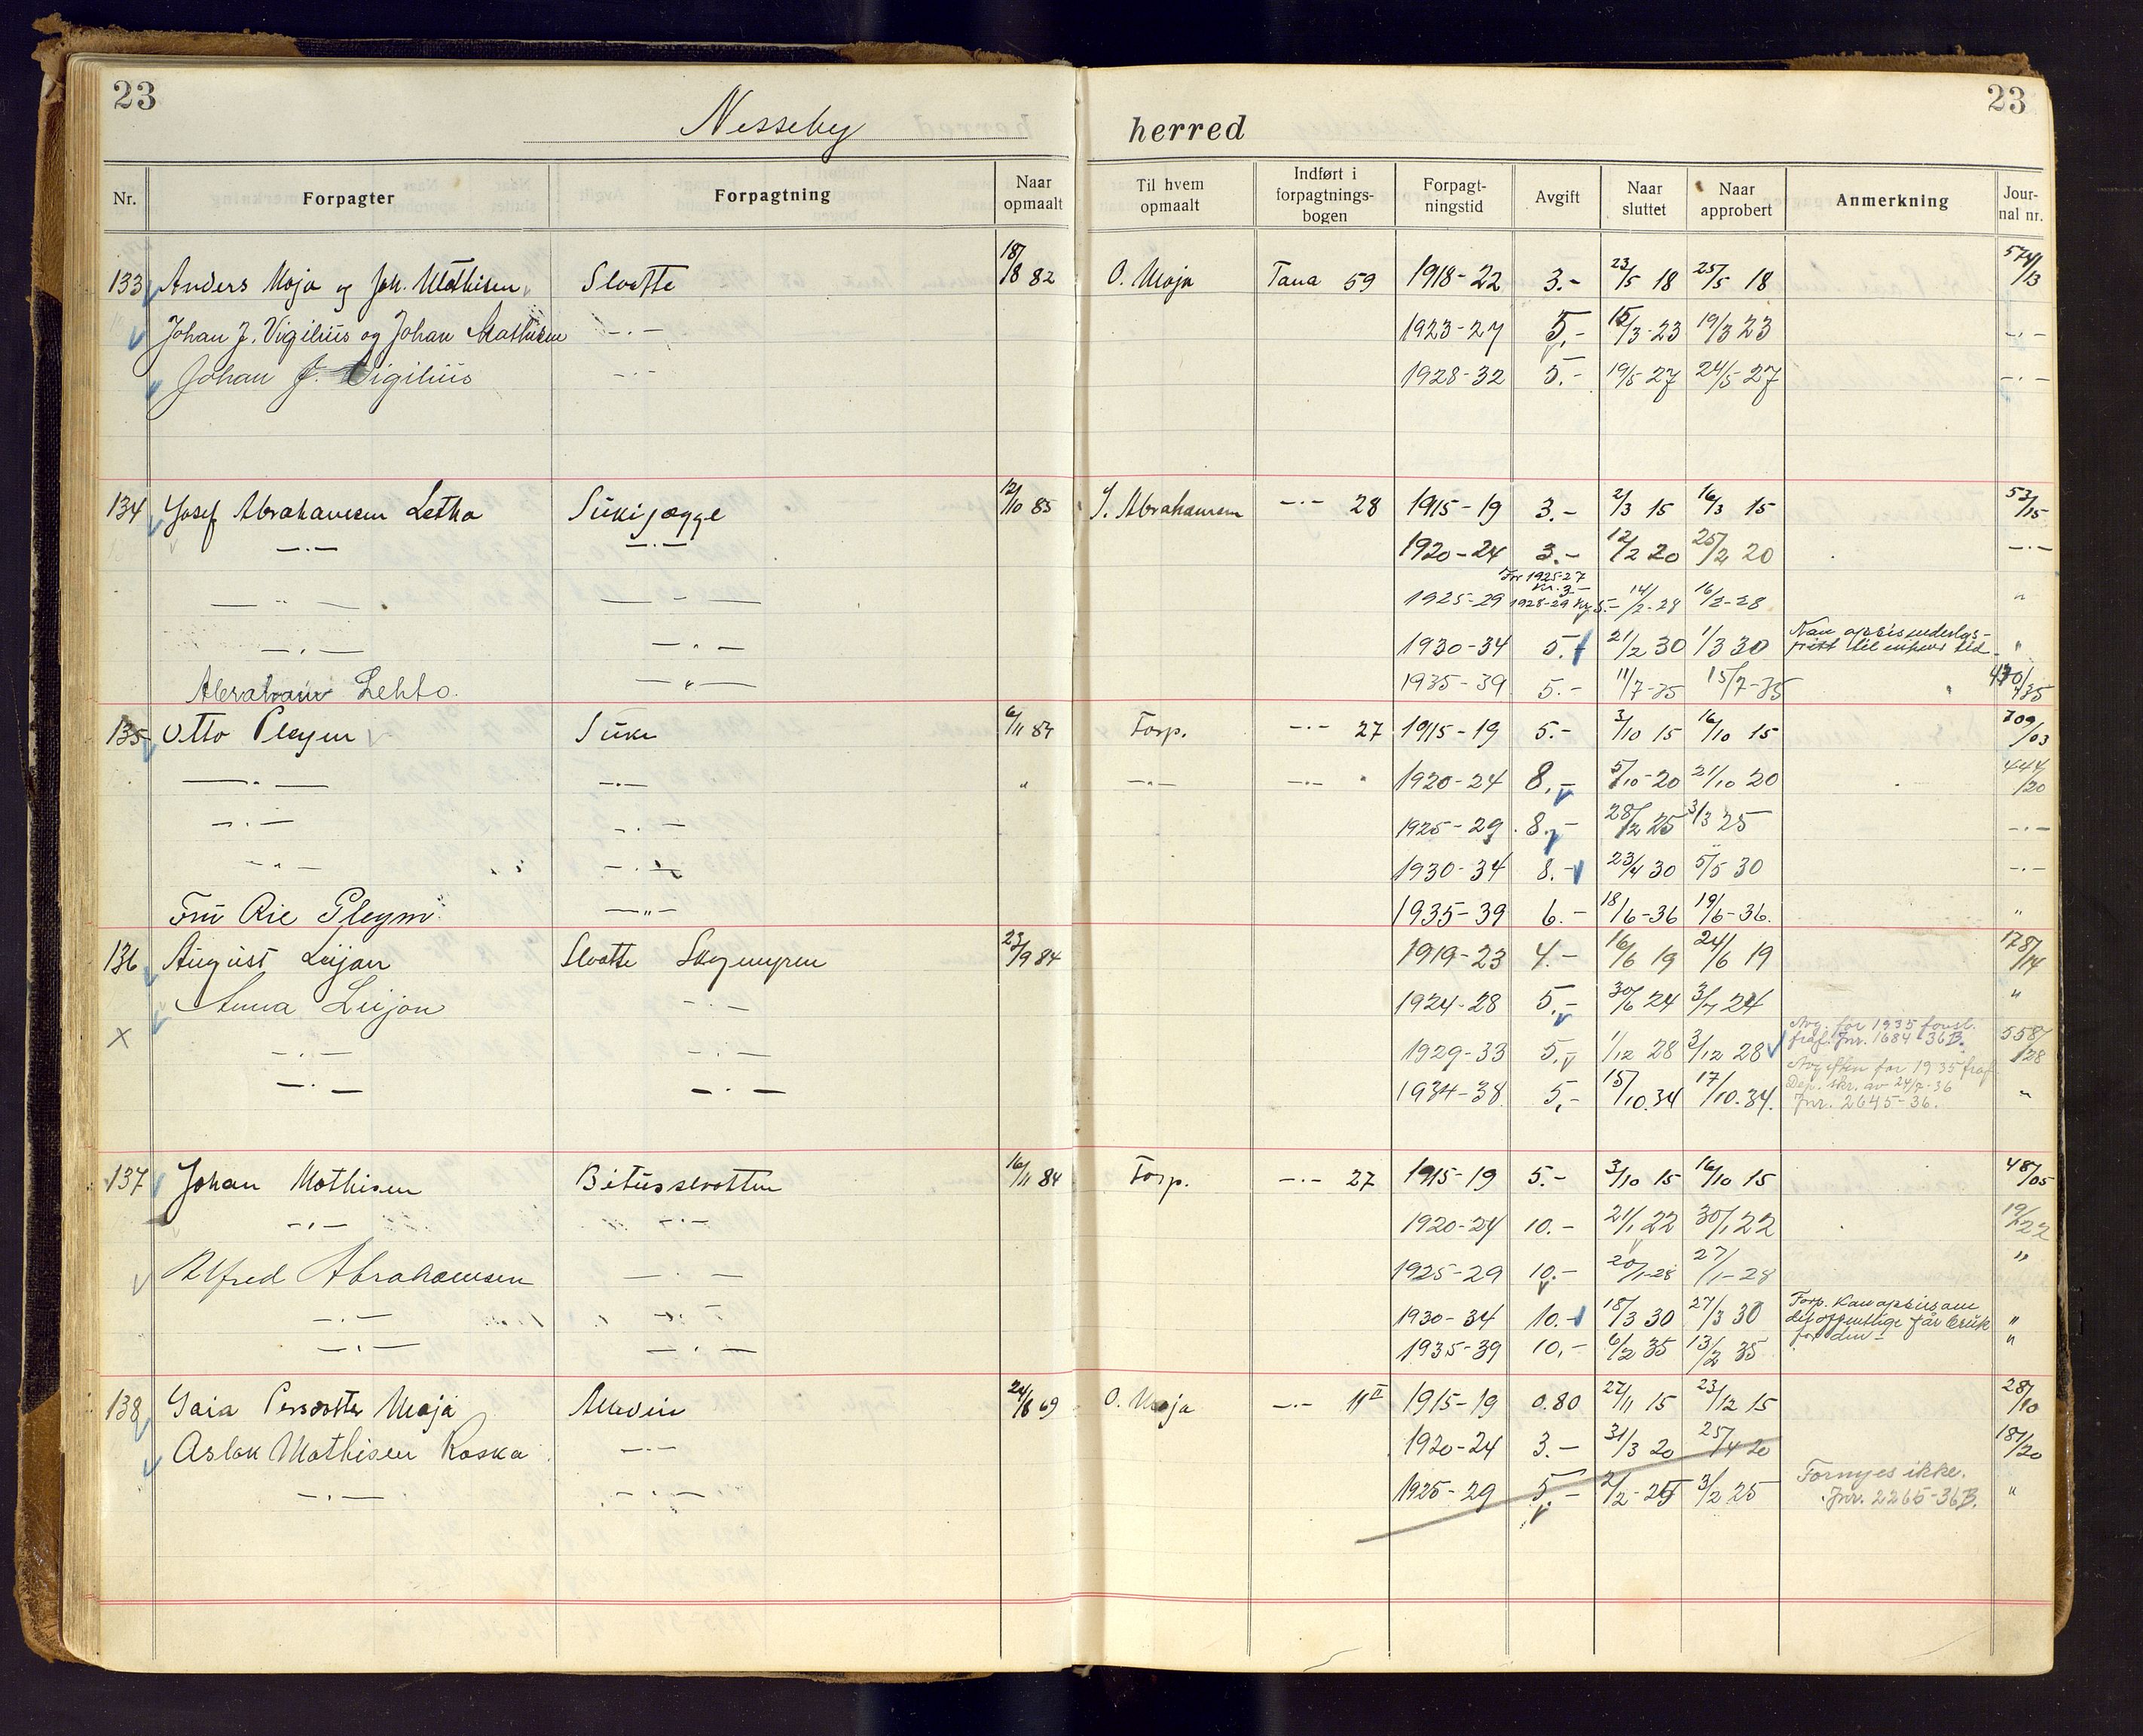 23
23
Nesseby herred
Nr. Forpagter Forpagtning Naar opmaalt Til hvem opmaalt Indført i forpagtnings-bogen Forpagt-ningstid Avgift Naar sluttet Naar approbert Anmerkning Jour-nal nr.
133 Anders Moja og Joh. Mathisen Slaatte 18/8 82 O. Moja Tana 59 1918-22 3.- 23/5 18 25/5 18 574/13
Johan J. Vigiliüs og Johan Mathisen -·- 1923-27 5,- 15/3-23 19/3 23 -·-
Johan J. Vigiliüs -·- 1928-32 5.- 19/5 27 24/5 27 -·-
134 Josef Abrahamsen Letho Sükijægge 12/10 85 J. Abrahamsen -·- 28 1915-19 3.- 2/3 15 16/3 15 53/15
-·- -·- 1920-24 3.- 12/2 20 25/2 20 -·-
For 1925-27 Kr. 3-
-"- -"- 1925-29 1928-29 Kr. 5.- 14/2-28 16/2-28 "
-·- -"- 1930-34 5.- 21/2 30 1/3 30 Kan opsis uten lov-
frist til enhver tid "
Abraham Lehto. -"- 1935-39 5.- 11/7-35 15/7-35 470/35
135 Otto Pleym Süki 6/11 84 Forp. -·- 27 1915-19 5.- 3/10 15 16/10 15 709/03
-"- -·- " -·- -·- " 1920-24 8.- 5/10-20 21/10 20 444/20
-·- -·- 1925-29 8.- 28/2 25 3/3 25 -·-
-"- -·- 1930-34 8.- 23/4 30 5/5 30 -·-
Frü Rie Pleym -"- 1935-39 6.- 18/6-36 19/6-36. "
136 August Leijan Slaatte Skogmyren 23/9 84 1919-23 4.- 16/6 19 24/6 19 178/14
Anna Leijon -·- 1924-28 5.- 30/6 24 3/7 24 "
X -·- -·- 1929-33 5.- 1/12 28 3/12 28 Avg. for 1935 forsl.
fraf. Jnr. 1684-36B. 558/28
-·- -·- 1934-38 5,- 15/10.34 17/10.34. Avgiften for 1935 fraf.
Dep. skr. av 24/7-36
Jnr. 2645-36. "
137 Johan Mathisen Bitüsslaatten 16/11 84 Forp. -·- 27 1915-19 5.- 3/10 15 16/10 15 48/05
-·- -·- 1920-24 10.- 21/1 22 30/1 22 19/22
Alfred Abrahamsen -·- 1925-29 10.- 20/1-28 27/1-28 "
-·- -·- 1930-34 10.- 18/3 30 27/3 30 Forp. Kan opsis om
det offentlige får brük
for den- "
-·- -·- 1935-39 10,- 6/2 35 13/2 35 "
138 Gaia Persdotter Moja 24/8 69 O. Moja -·- 11 II 1915-19 0.80 27/11 15 23/12 15 28/10
Aslak Mathisen Koska -·- 1920-24 3.- 31/3 20 25/4 20 181/20
-·- -·- 1925-29 5.- 2/2-25 3/2 25 Fornyes ikke.
Jnr. 2265-36B. "